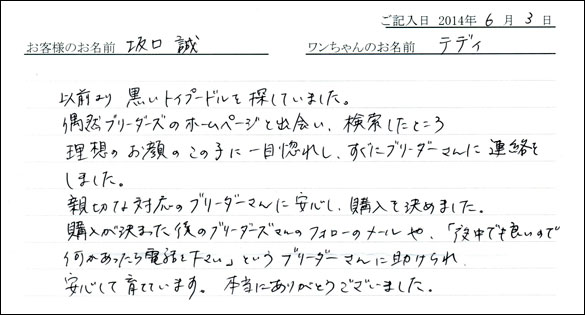 ご記入日 2014年 6 月 3 日
お客様のお名前 坂口 誠 ワンちゃんのお名前 テディ
以前より 黒いトイプードルを探していました。
偶然ブリーダーズのホームページと出会い、検索したところ
理想のお顔のこの子に一目惚れし、すぐにブリーダーさんに連絡を
しました。
親切な対応のブリーダーさんに安心し、購入を決めました。
購入が決まった後のブリーダーズさんのフォローのメールや、「夜中でも良いので
何かあったら電話を下さい」というブリーダーさんに助けられ、
安心して育てています。本当にありがとうございました。